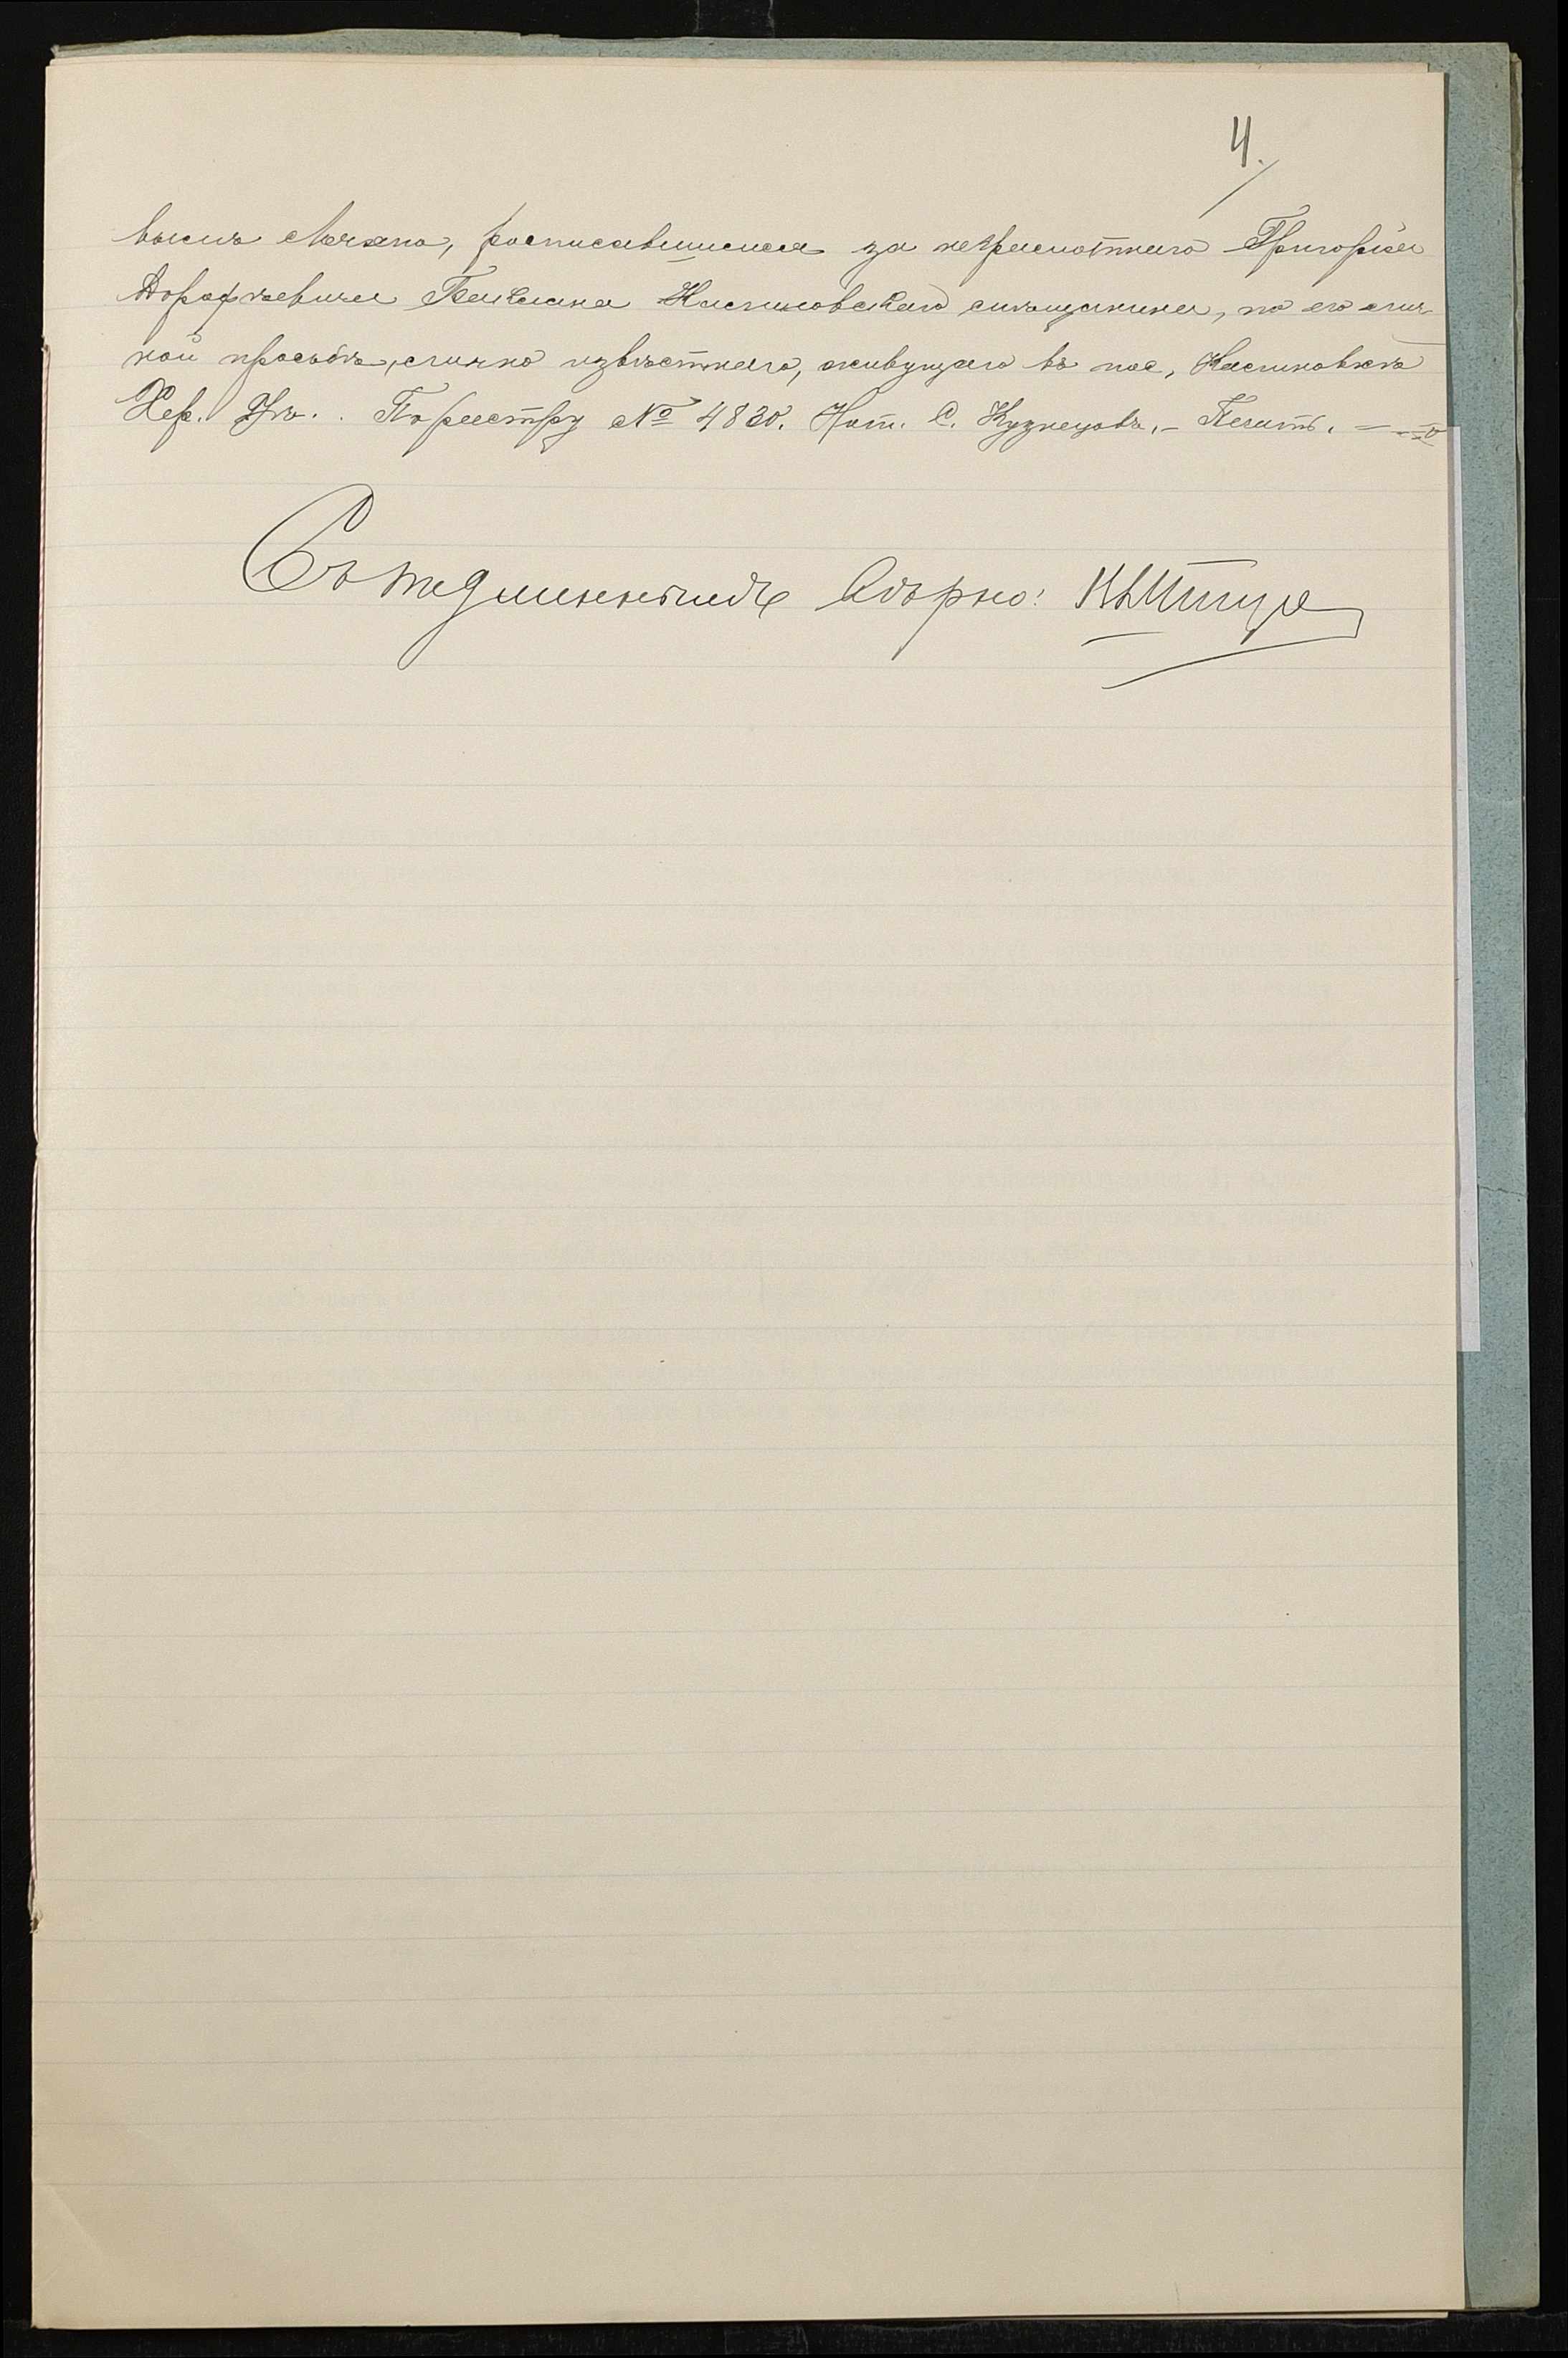 4.
росписавшимися за неграмотнаго Григорія
Дорофѣевича Калиновскаго мѣщанина, по его лич-
ной просьбѣ, лично извѣстнаго, живущаго въ пос, Калиновкѣ
Хер. Уѣ.. По реестру № 4830. Нот. С. Кузнецовъ.- Печать. —
Съ подлиннымъ вѣрно: